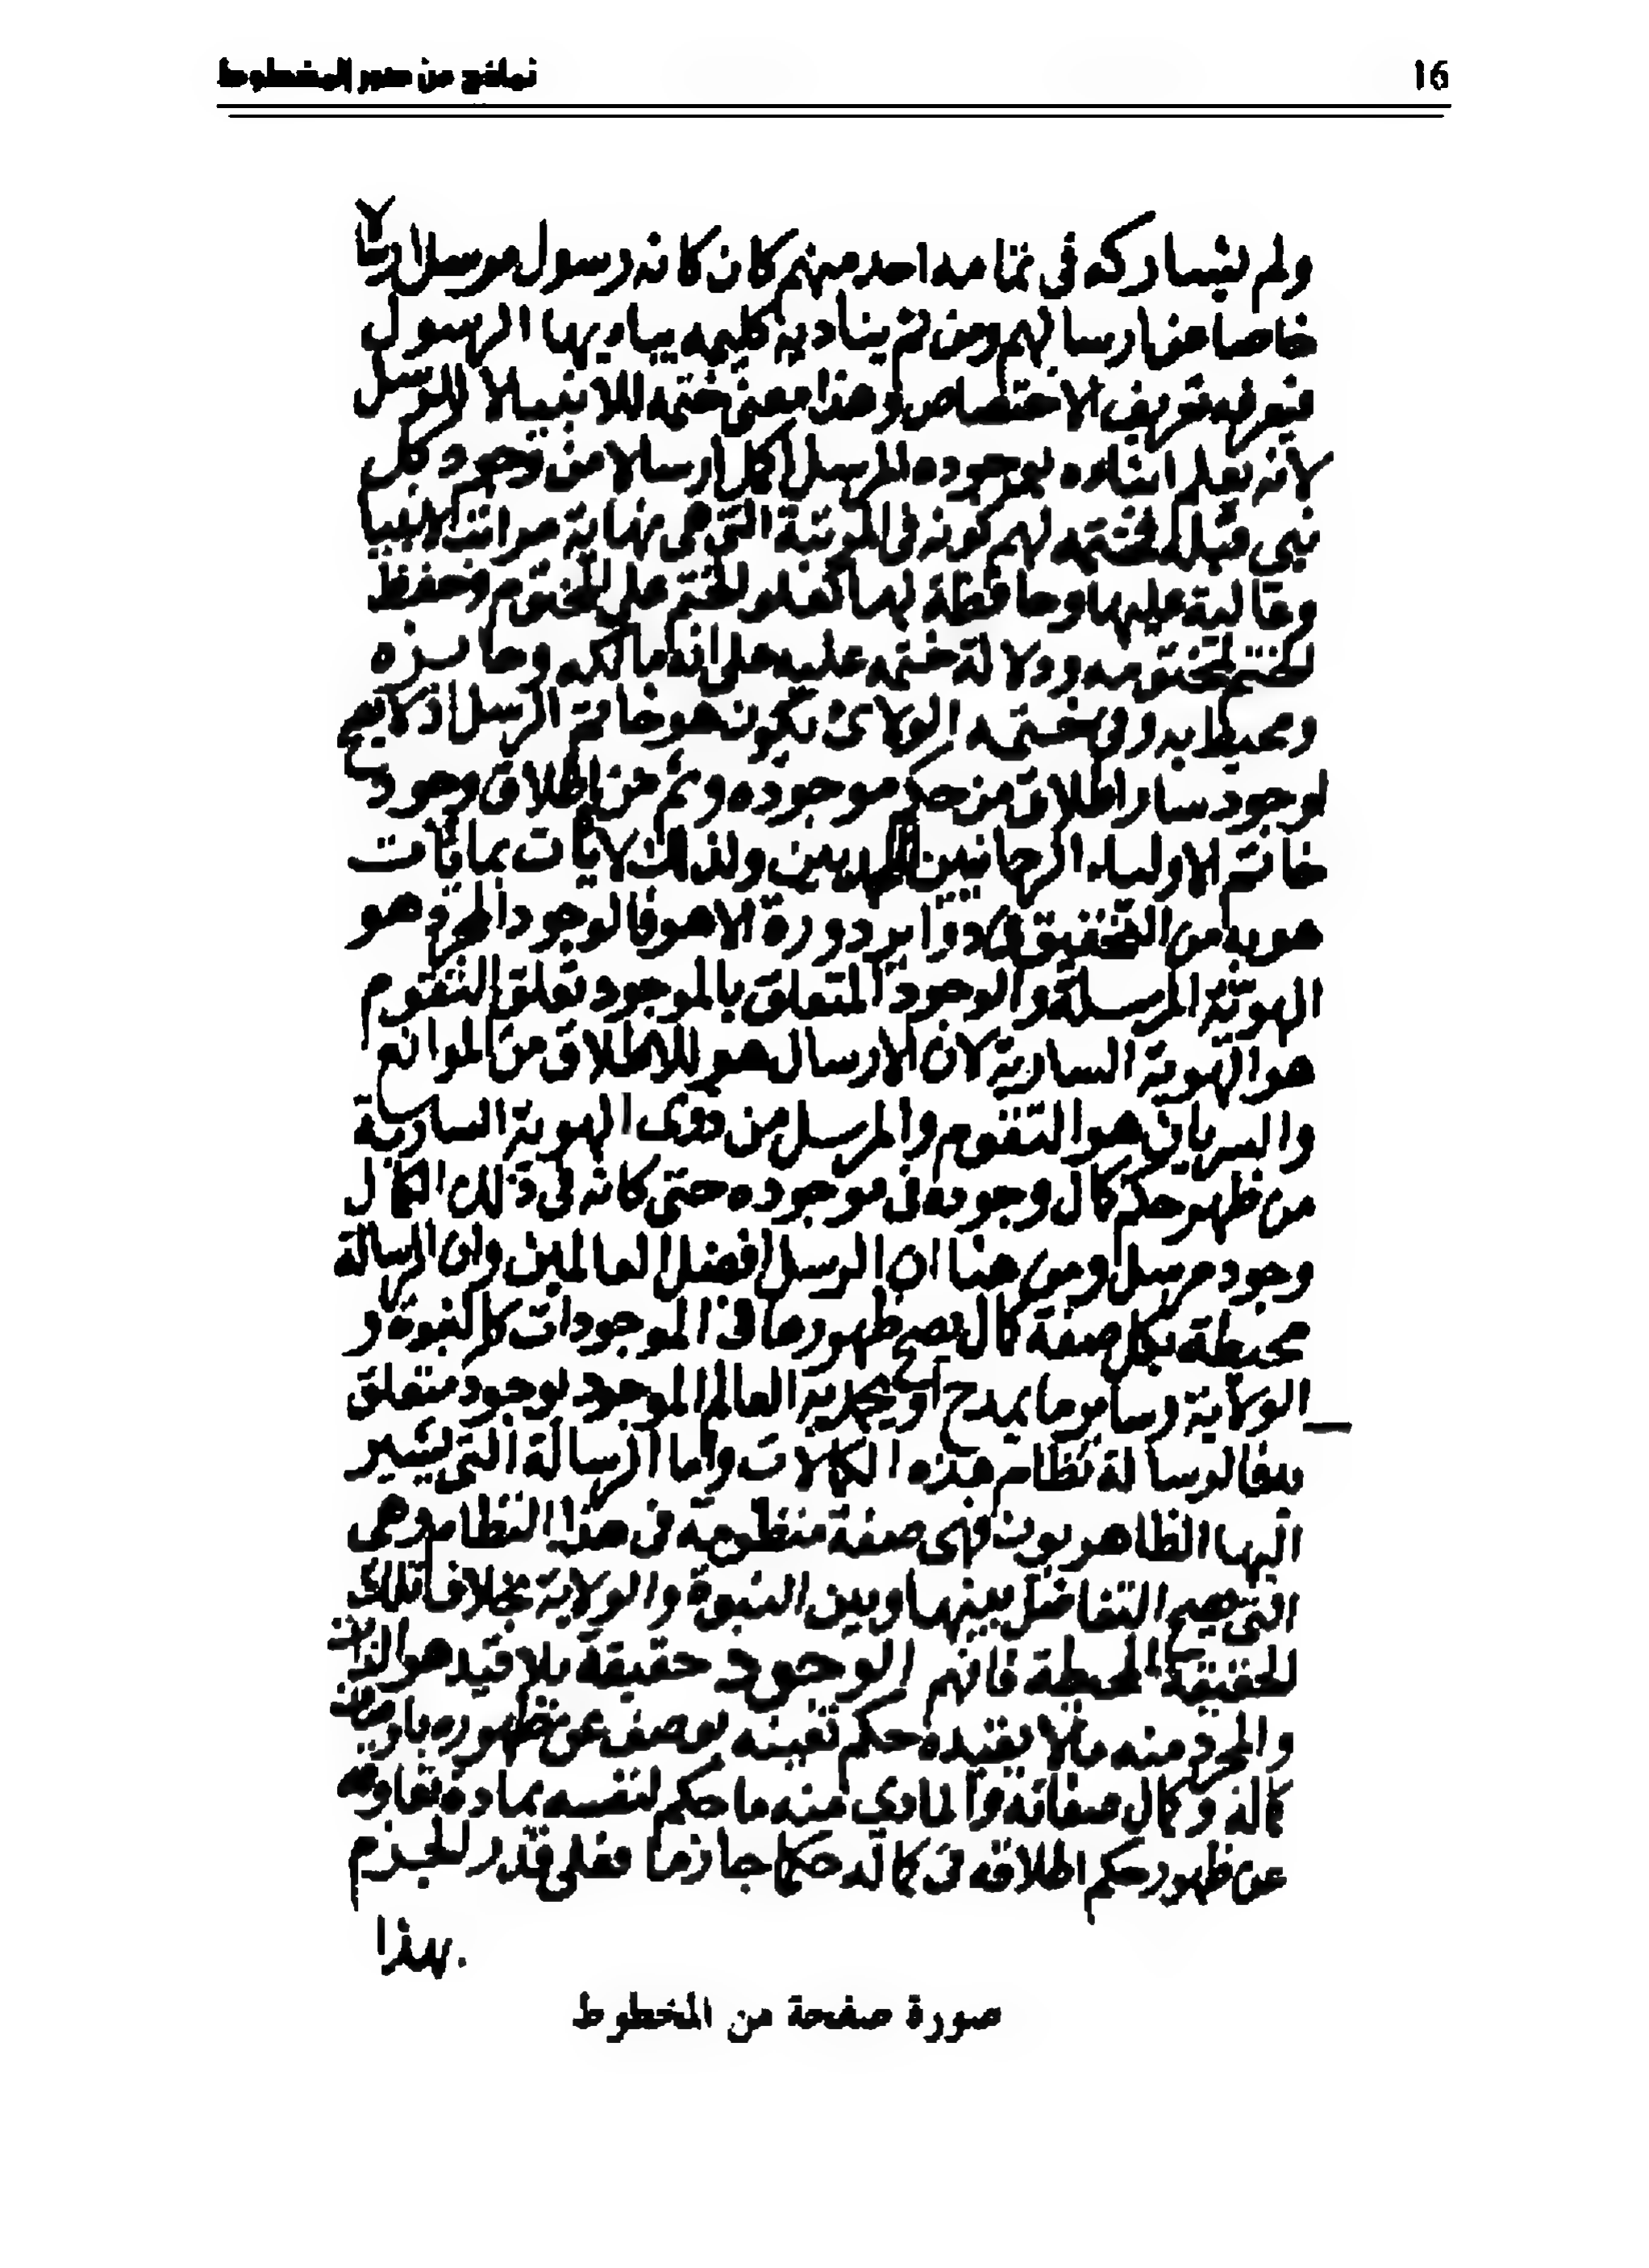 16
نماذج من صور المخطوط
ولم يشاركه في تمامه احد منهم كان كانه رسول مرسل ارسالا
خاصا من ارسالهم ومن ثم يناديه كليمه بياايها الرسول
فيعرفه تعريف الاختصاص وهذا معنى ختمه للانبيا لا للرسل
لانه يعلم موجوده المرسل اكل ارسالا من وجود كل
نبي قبله فختمه لهم كونه في المرتبة التي هي نهاية مراتب الانبيا
عليها وحافظة لها كعلو الختم على المختوم وحفظ
الختم ودلالة ختمه عليه على انه مالكه وحايزه
ومحيط به وفي ختمه الولائ يكون هو خاتم الرسل اذ لا يصح
لوجود سار اطلاق من حكم موجوده وثم من اطلاق وجود
خاتم الاولياء ولذلك لا يأت بما يأت
هو به من التحقيق في دواير دورة الا هو فالوجود المجرد هو
الهوية المرسلة والوجود المتعلق بالموجود تعلق التقوم
هو الهوية السارية لان الارسال هو للاطلاق من الموانع
والسريان هو التقوم والمرسل من ذوى الهوية السارية
من ظهر حكم كمال وجوده في موجوده حتى كانه في ذلك الكمال
وجود مرسل ومن هنا ان الرسل افضل العالمين وان الرسالة
محيطة بكل صفة كمال يصح ظهورها في الموجودات كالنبوة و
الولاية وساير ما يمدح العالم الموجود لوجود متعلق
فالرسالة نظام هذه الكمالات واما الرسالة التي يشير
اليها الظاهريون فهي صفة منظومة في هذا النظام وهي
التي يصح التفاضل بينها وبين النبوة والولاية بخلاف تلك
الحقيقة المحيطة فافهم الوجود حقيقة بلا قيد هو الذات
والمجرد منه ما لا يقيده حكم تعينه بوصف عن ظهوره
كماله وكمال صفاته والمادي منه ما حكم لنفسه بمادة
عن ظهور حكم اطلاقه في كماله حكما جازما فعلى قدر الجزم
بهذا
صورة صفحة من المخطوط